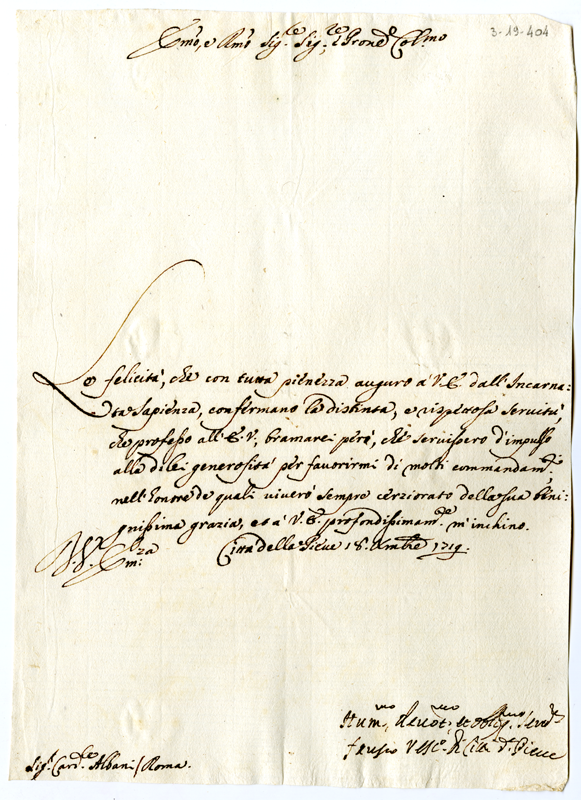 3-19-404
Emo, e Rmo Sig.re Sig.re e Pron.e Col.mo
Le felicità, che con tutta pienezza auguro à V.E. dall'Incarna:
ta Sapienza, confermano la distinta, e rispettosa servitù,
che professo all'E.V., bramarei però, che servissero d'impulso
alla di lei generosità per favorirmi di molti commandam.ti
nell'honore de quali viverò sempre cerziorato della sua beni:
gnissima grazia, et à V.E. profondissimam.te m'inchino.
V.ra Em:za Città della Pieve 18. Xmbre 1719.
Hum.mo Devot.mo et oblig.mo Serv.re
Vesc.o di Città d.a Pieve
Sig.r Card.le Albani / Roma.